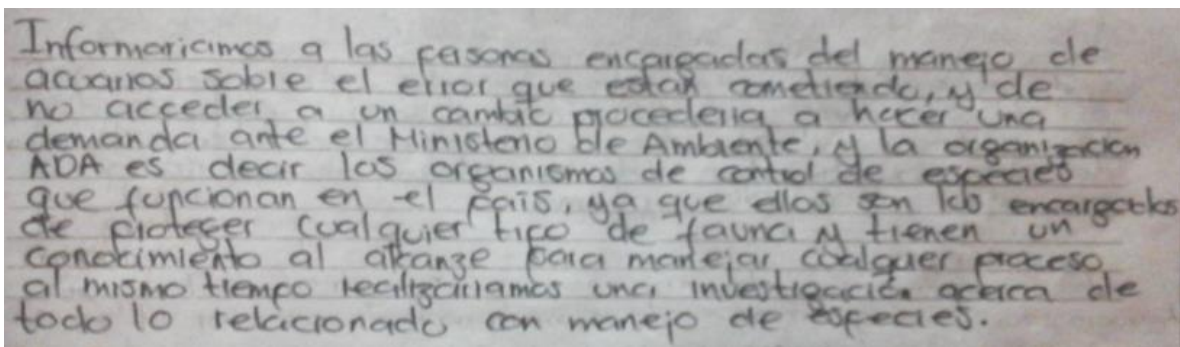 Informariamos a las personas encargadas del manejo de
acuarios sobre el error que estan cometiendo, y de
no acceder a un cambio procederia a hacer una
demanda ante el Ministerio de Ambiente, y la organizacion
ADA es decir los organismos de control de especies
que funcionan en el país, ya que ellos son los encargados
de proteger cualquier tipo de fauna y tienen un
conocimiento al alcanze para manejar cualquer proceso,
al mismo tiempo realizariamos una investigación acerca de
todo lo relacionado con manejo de especies.